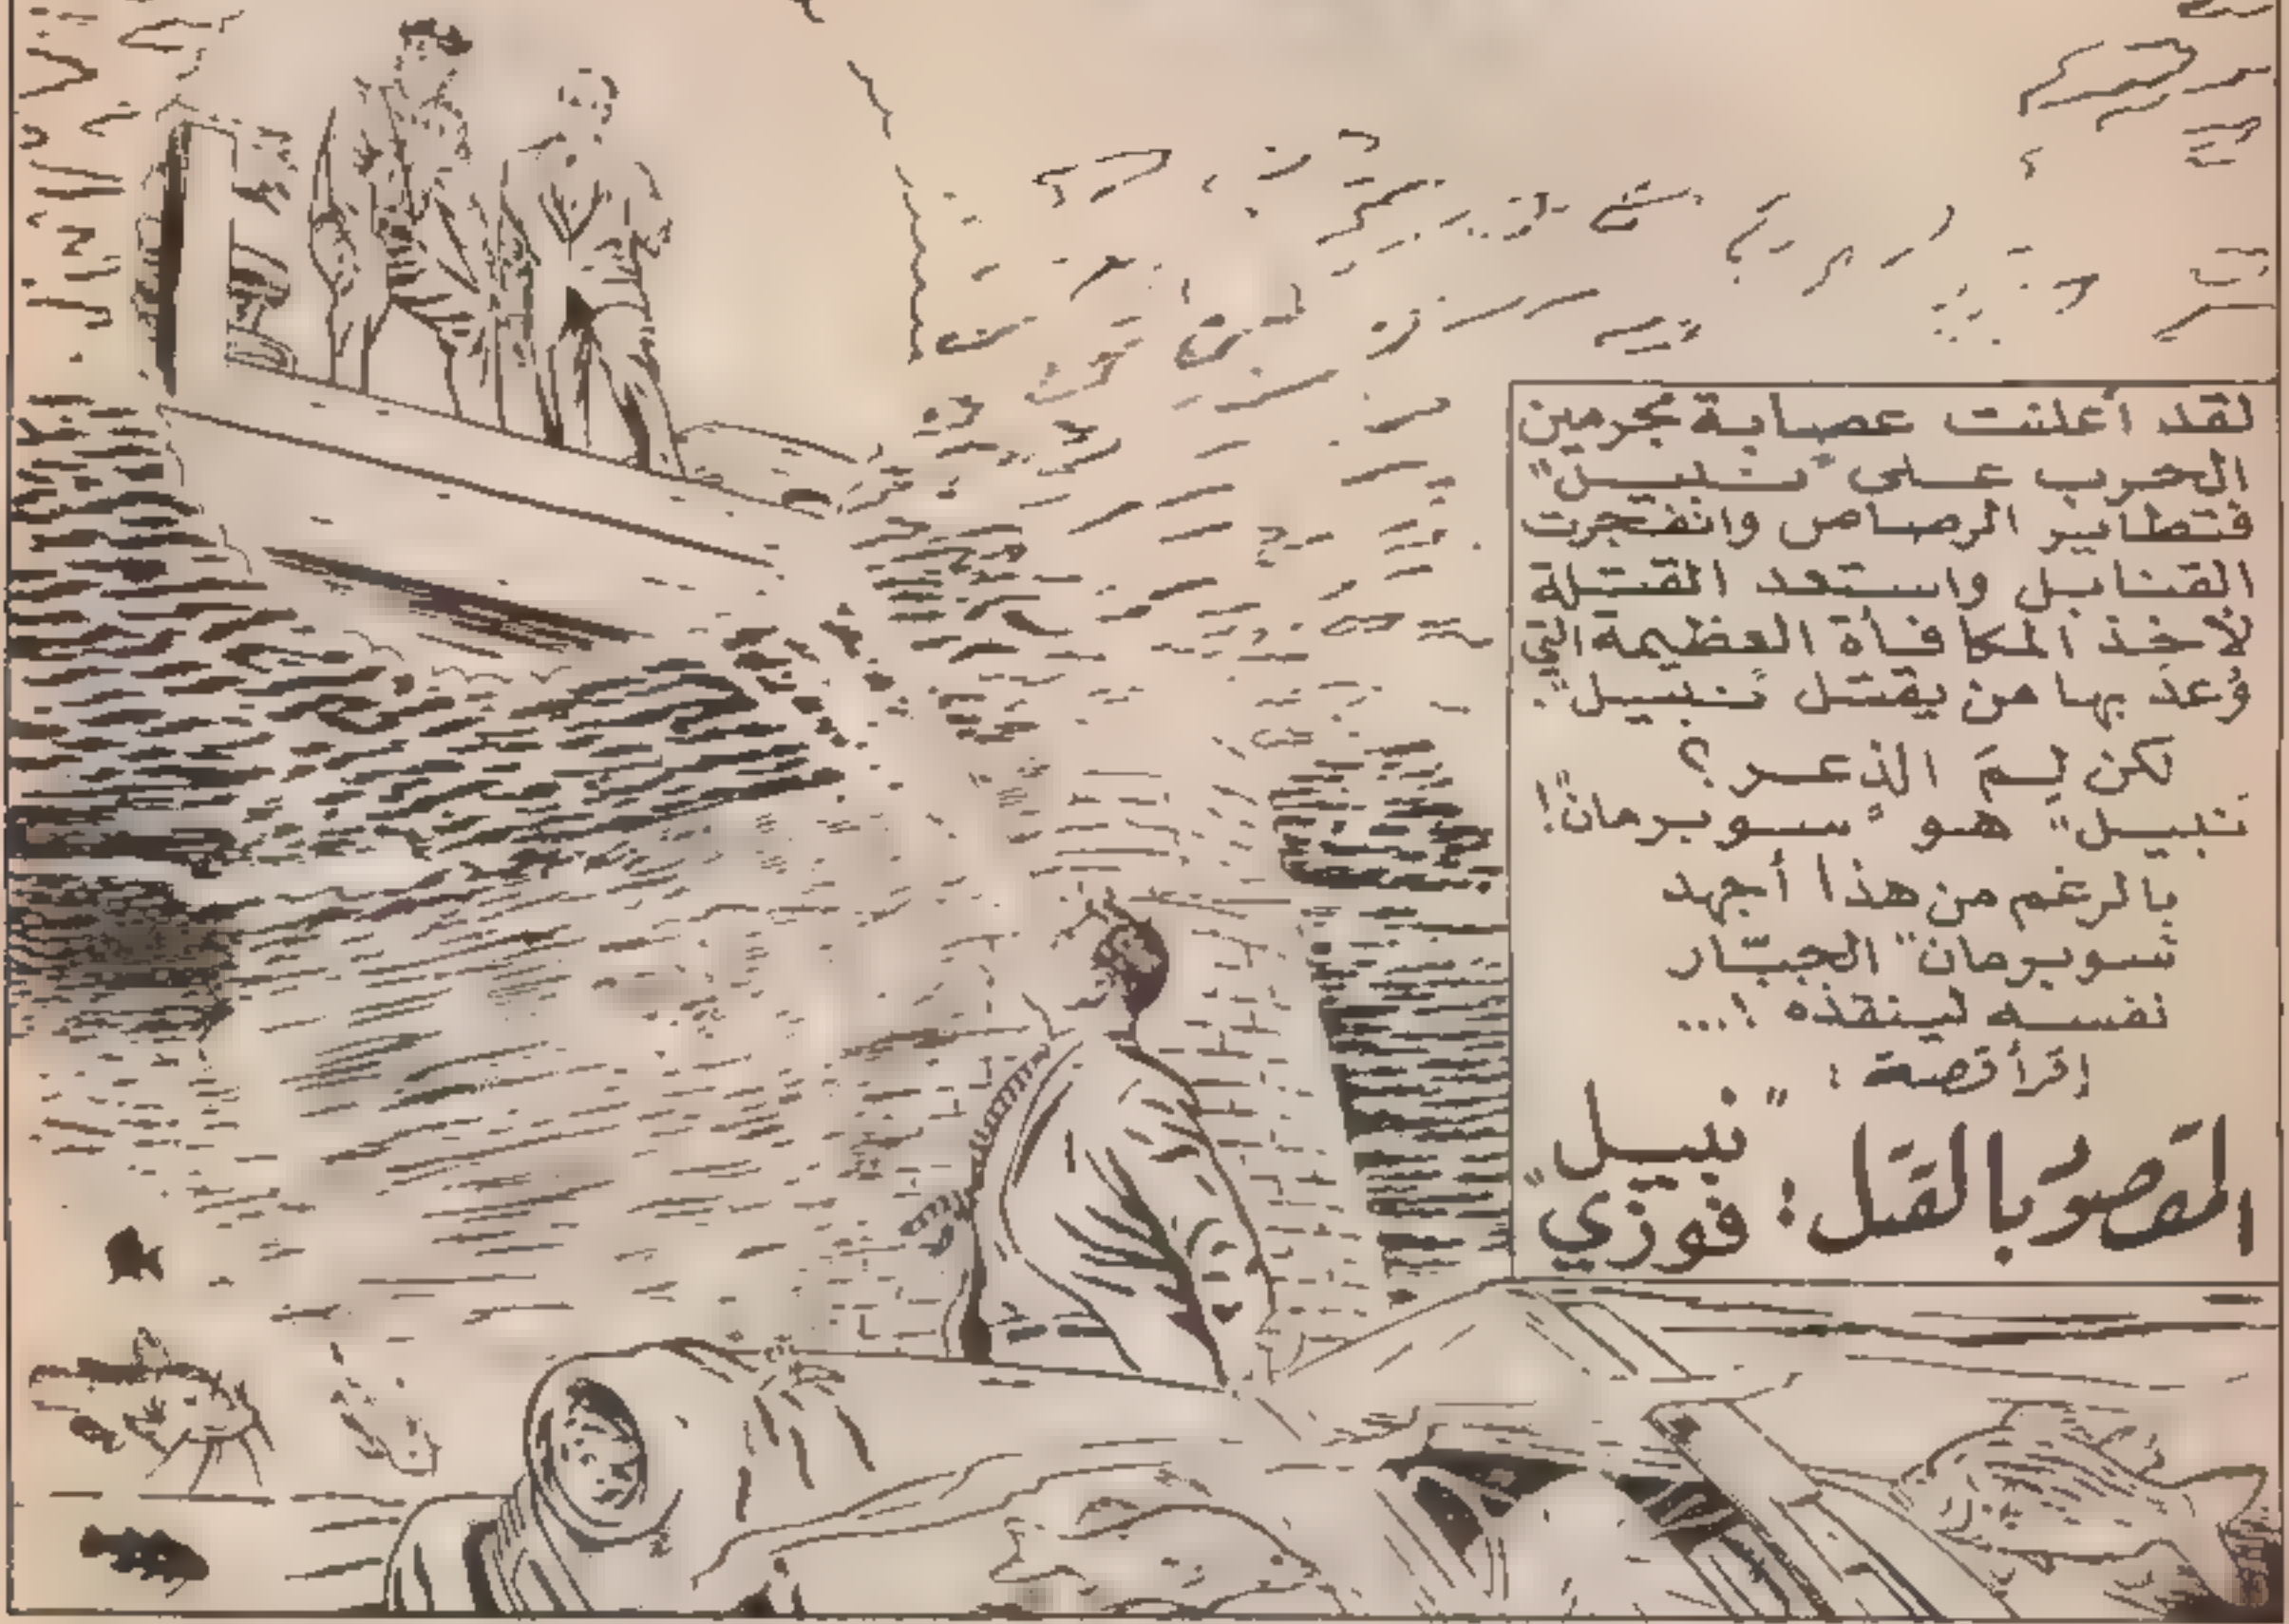 لقد أعلنت عصابة مجرمين
الحرب على "نبيل"
فتطاير الرصاص وانفجرت
القنابل واستعد القتلة
لأخذ المكافأة العظيمة التي
وُعد بها من يقتل "نبيل".
لكن لِمَ الذعر؟
"نبيل" هو "سوبرمان"!
بالرغم من هذا أجهد
"سوبرمان" الجبّار
نفسه لينقذه !...
إقرأ قصة :
المقصود بالقتل : "نبيل فوزي"